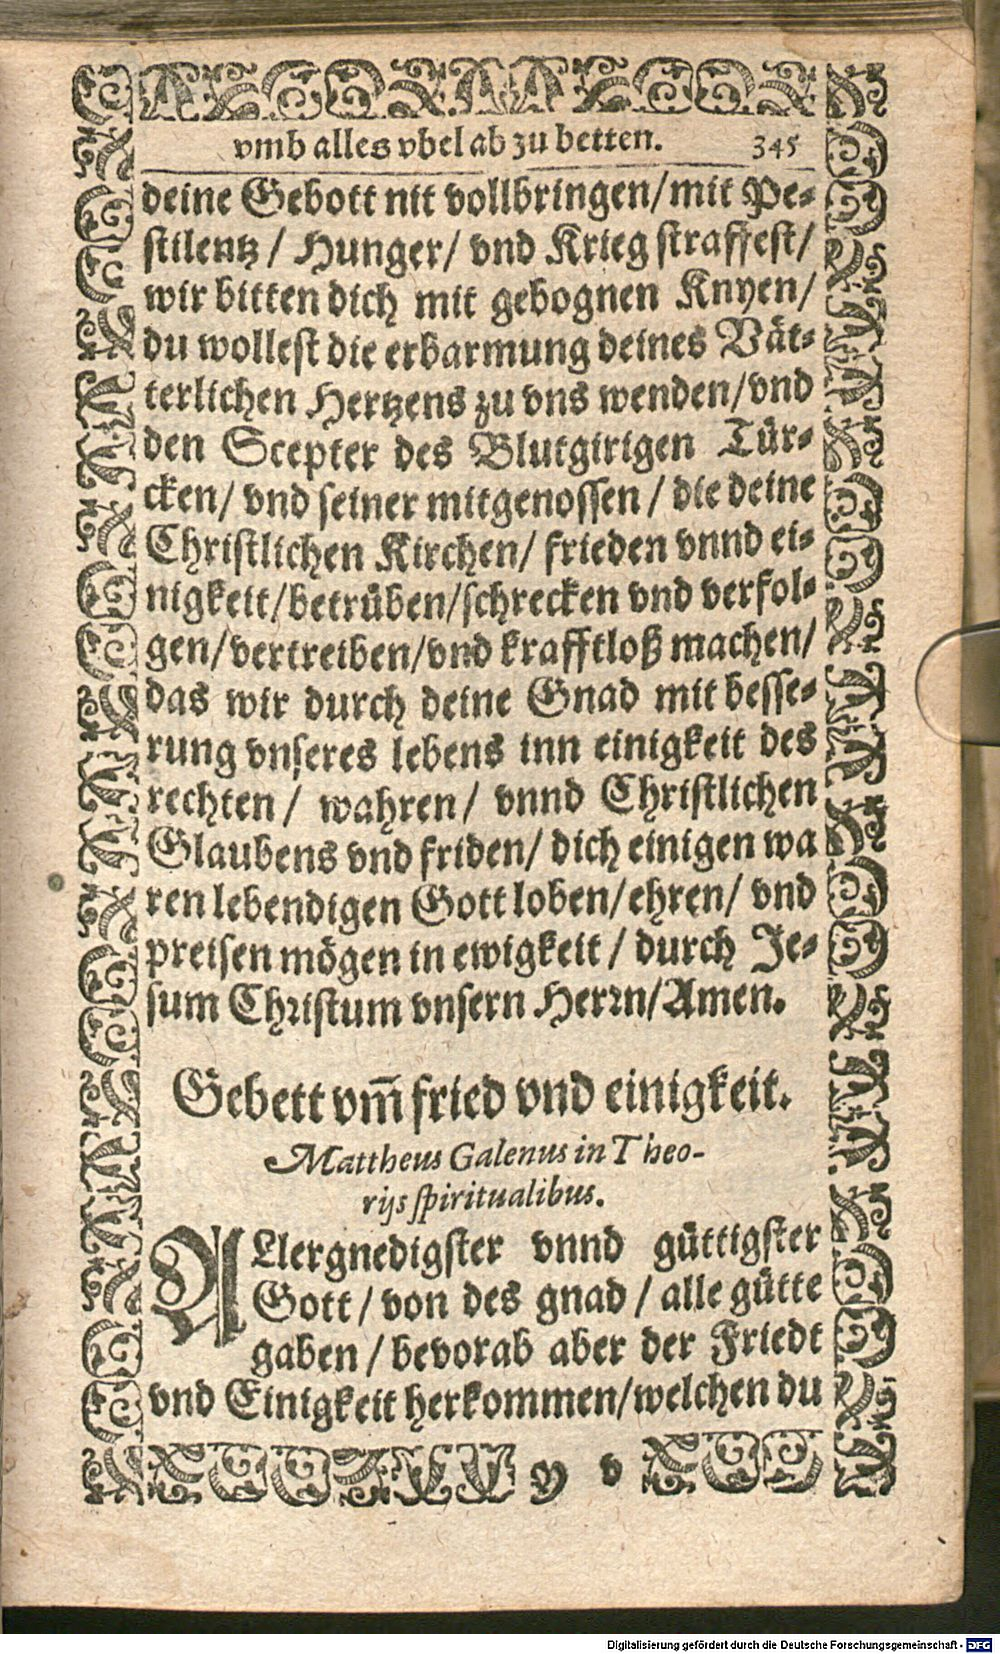 vmb alles vbel ab zu betten. 345
deine Gebott nit vollbringen/mit Pe-
stilentz / Hunger/ vnd Krieg straffest/
wir bitten dich mit gebognen Knyen/
du wollest die erbarmung deines Vät-
terlichen Hertzens zu vns wenden/vnd
den Scepter des Blutgirigen Tür-
cken/ vnd seiner mitgenossen / die deine
Christlichen Kirchen/ frieden vnnd ei-
nigkeit/betrüben/schrecken vnd verfol-
gen/vertreiben/vnd krafftloß machen/
das wir durch deine Gnad mit besse-
rung vnseres lebens inn einigkeit des
rechten/ wahren/ vnnd Christlichen
Glaubens vnd friden/ dich einigen wa
ren lebendigen Gott loben/ehren/ vnd
preisen mögen in ewigkeit / durch Je-
sum Christum vnsern Herrn/Amen.
Gebett vm̃ fried vnd einigkeit.
Mattheus Galenus in Theo-
rijs spiritualibus.
ALlergnedigster vnnd güttigster
Gott / von des gnad / alle gütte
gaben / bevorab aber der Friedt
vnd Einigkeit herkommen/welchen du
y v
Digitalisierung gefördert durch die Deutsche Forschungsgemeinschaft - DFG